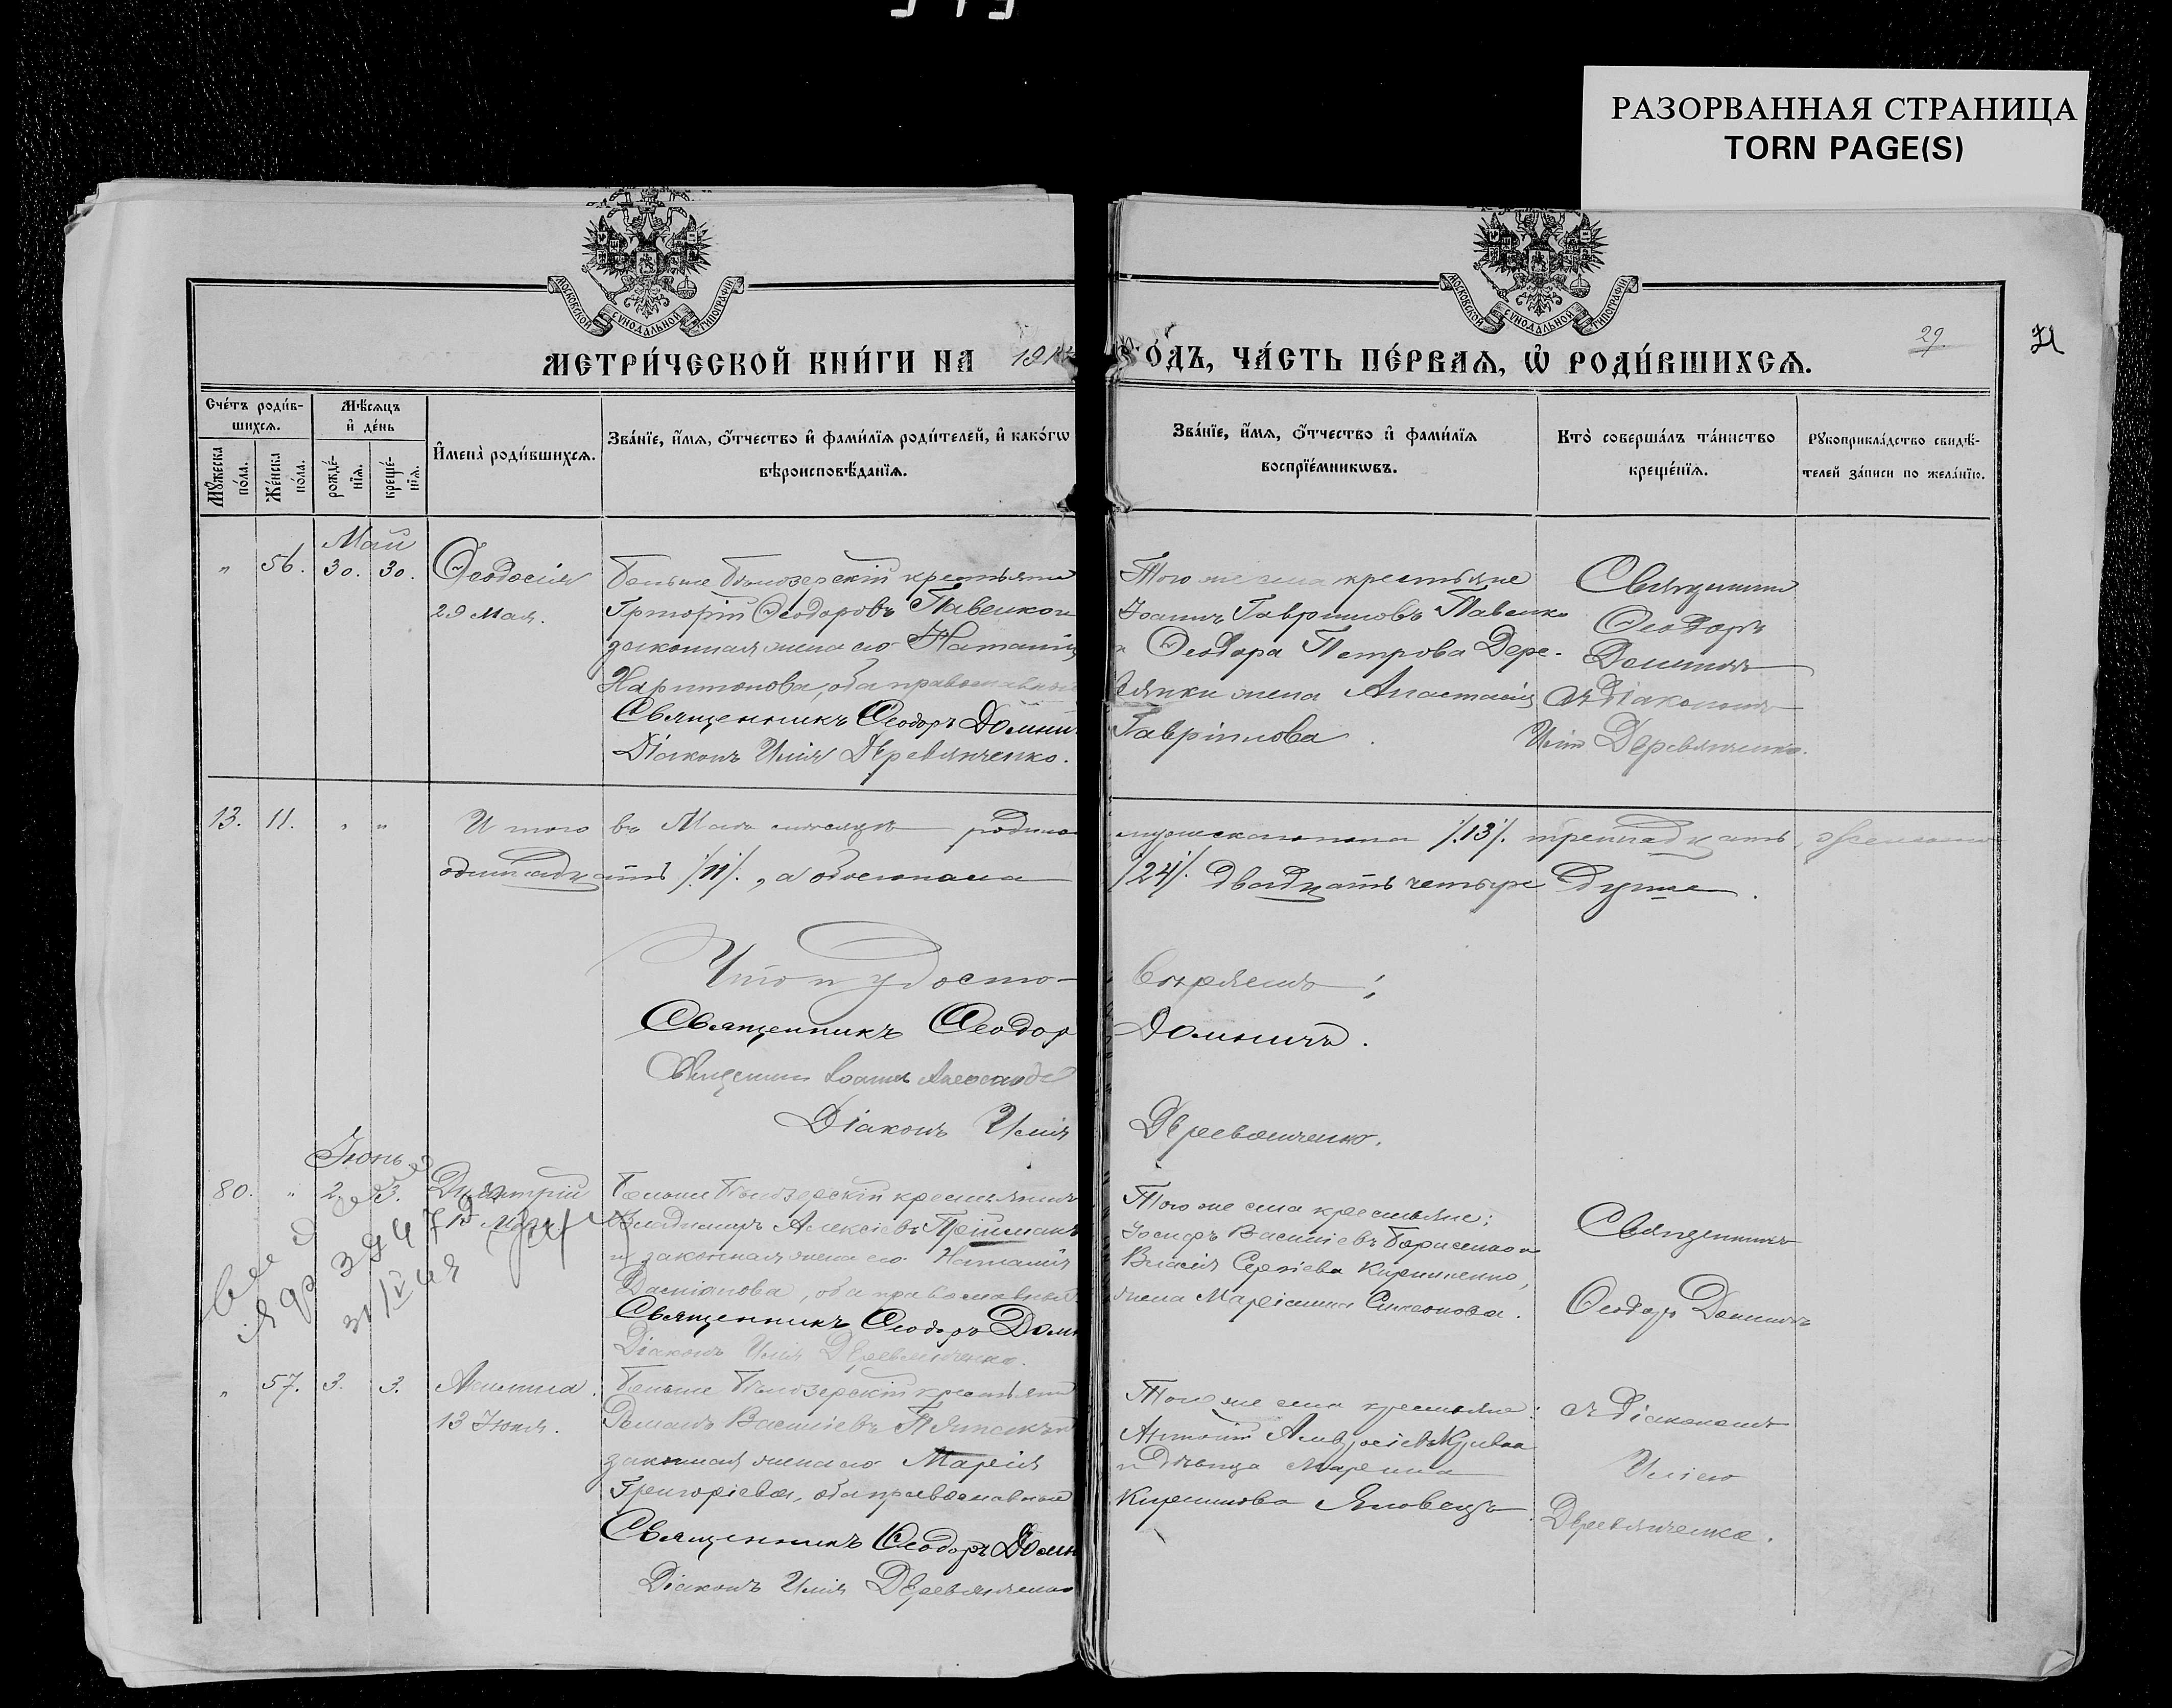 РАЗОРВАННАЯ СТРАНИЦА
TORN PAGE(S)
МОСКОВСКОЙ СѴНОДАЛЬНОЙ ТИПОГРАФІИ
МОСКОВСКОЙ СѴНОДАЛЬНОЙ ТИПОГРАФІИ
МЕТРИ́ЧЕСКОЙ КНИ́ГИ НА 191
ОДЪ, ЧА́СТЬ ПЕ́РВАѦ, Ѡ҆ РОДИ́ВШИХСѦ.
29.
Сче́тъ роди́в-
шихсѧ.
Мѣ́сѧцъ
и҆ де́нь
Мꙋ́жеска
по́ла.
Же́нска
по́ла.
рожде́-
нїѧ.
креще́-
нїѧ.
И҆мена̀ роди́вшихсѧ.
Зва́нїе, и҆́мѧ, ѻ҆́тчество и҆ фами́лїѧ роди́телей, и҆ како́гѡ
вѣроисповѣ́данїѧ.
Зва́нїе, и҆́мѧ, ѻ҆́тчество и҆ фами́лїѧ
воспрїе́мникѡвъ.
Кто̀ соверша́лъ та́инство
креще́нїѧ.
Рꙋкоприкла́дство свидѣ́-
телей за́писи по жела́нїю.
Май
„ 56. 30. 30. Ѳеодосія
29 Мая.
Больше Бѣлозерскій крестьянинъ
Григорій Ѳеодоровъ Павенко и
законная жена его Наталія
Харитонова, оба православные
Священникъ Ѳеодоръ Домни
Діаконъ Илія Деревянченко.
Того же села крестьяне
Іоаннъ Гавриловъ Павенко
и Ѳеодора Петрова Дере-
вянки жена Анастасія
Гавріилова.
Священникъ
Ѳеодоръ
Домничъ
съ Діакономъ
Иліею Деревянченко.
13. 11. „ „ Итого въ Маѣ мѣсяцѣ родило
мужескаго пола /13/. тринадцать, женскаго
одиннадцать /11/., а обоего пола
/24/. двадцать четыре души.
Что и удосто-
вѣряемъ:
Священникъ Ѳеодор
Домничъ.
Священникъ Іоаннъ
Діаконъ Илія
Деревянченко.
Іюнь
80. „ 2. 3. Димитрій
Больше Бѣлозерскій крестьянинъ
Владимиръ Алексіевъ
и законная жена его Наталія
Даміанова, оба православные
Священникъ Ѳеодоръ Домн
Діаконъ Илія Деревянченко.
Того же села крестьяне:
Іосифъ Василіевъ Борисенко и
Власія Сергіева Кириленко,
жена Маріанна Симеонова.
Священникъ
Ѳеодоръ Домничъ
„ 57. 3. 3. Акилина.
13 Іюня.
Больше Бѣлозерскій крестьянинъ
Романъ Василіевъ
законная жена его Марія
Григоріева, оба православные
Священникъ Ѳеодоръ Домн
Діаконъ Илія Деревянченко
Того же села крестьяне:
Антоній Амвросіевъ
и дѣвица Марина
Кириллова Яловецъ.
съ Діакономъ
Иліею
Деревянченко.